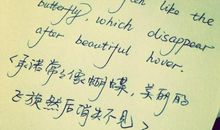 like the
butterfly, which disappear
after beautiful hover.
<承诺常常像蝴蝶，美丽的
飞旋然后消失不见>